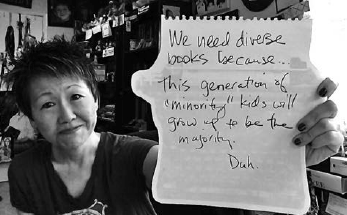 We need diverse
books because...
This generation of
"minority" kids will
grow up to be the
majority.
Duh.